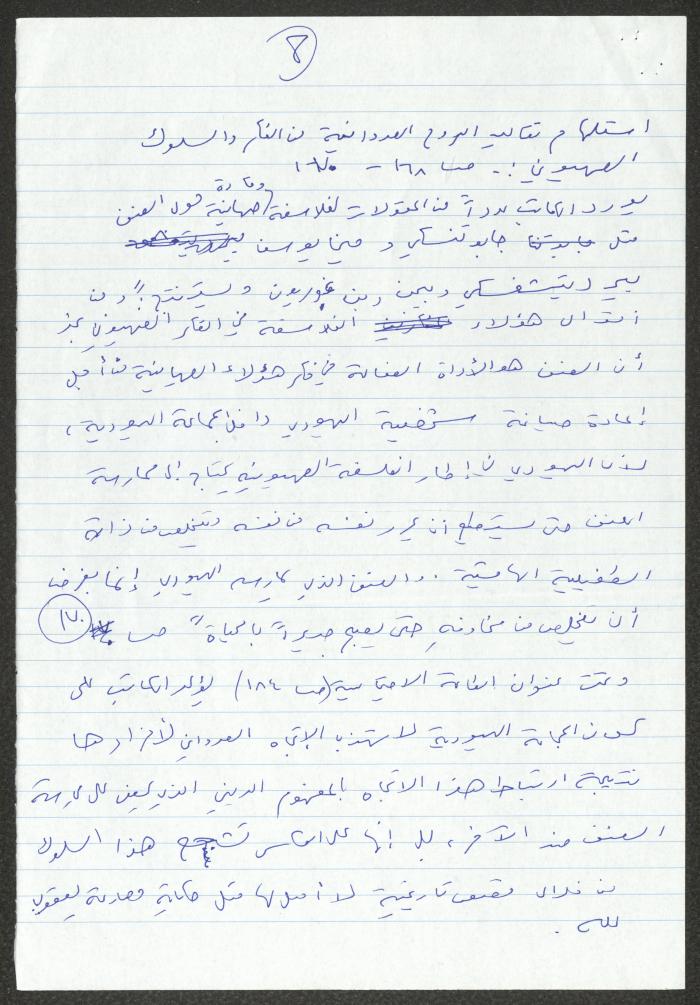 ٨
استلهام تقاليد الروح العدوانية في الفكر والسلوك
الصهيوني :. صـ ١٦٨ - ١٧٠
وقادة
يورد الكاتب عدداً من المقولات لفلاسفة صهاينة حول العنف
مثل جابوتنسكي و
بيرديتشفسكي وبيجن وبن غوريون ويستنتج: "ومن
أقوال هؤلاء الفلاسفة في الفكر الصهيوني نجد
أن العنف هو الأداة الفعالة في فكر هؤلاء الصهاينة من أجل
إعادة صياغة شخصية اليهودي داخل الجماعة اليهودية،
لأن اليهودي في إطار الفلسفة الصهيونية يحتاج إلى ممارسة
العنف حتى يستطيع أن يحرر نفسه من نفسه ويتخلص من ذاته
الطفيلية الهامشية. والعنف الذي يمارسه اليهودي إنما بغرض
أن يتخلص من مخاوفه حتى يصبح جديراً بالحياة" صـ ١٧٠
وتحت عنوان (صـ ١٨٤) يؤكد الكاتب على
كون الجماعة اليهودية لا تستهجن الاتجاه العدواني لأفرادها
نتيجة ارتباط هذا الاتجاه بالمفهوم الديني الذي يحض على ممارسة
العنف ضد الآخر، بل إنها على العكس تشجع هذا السلوك
من خلال قصص تاريخية لا أصل لها مثل حكاية مصارعة يعقوب
لله.